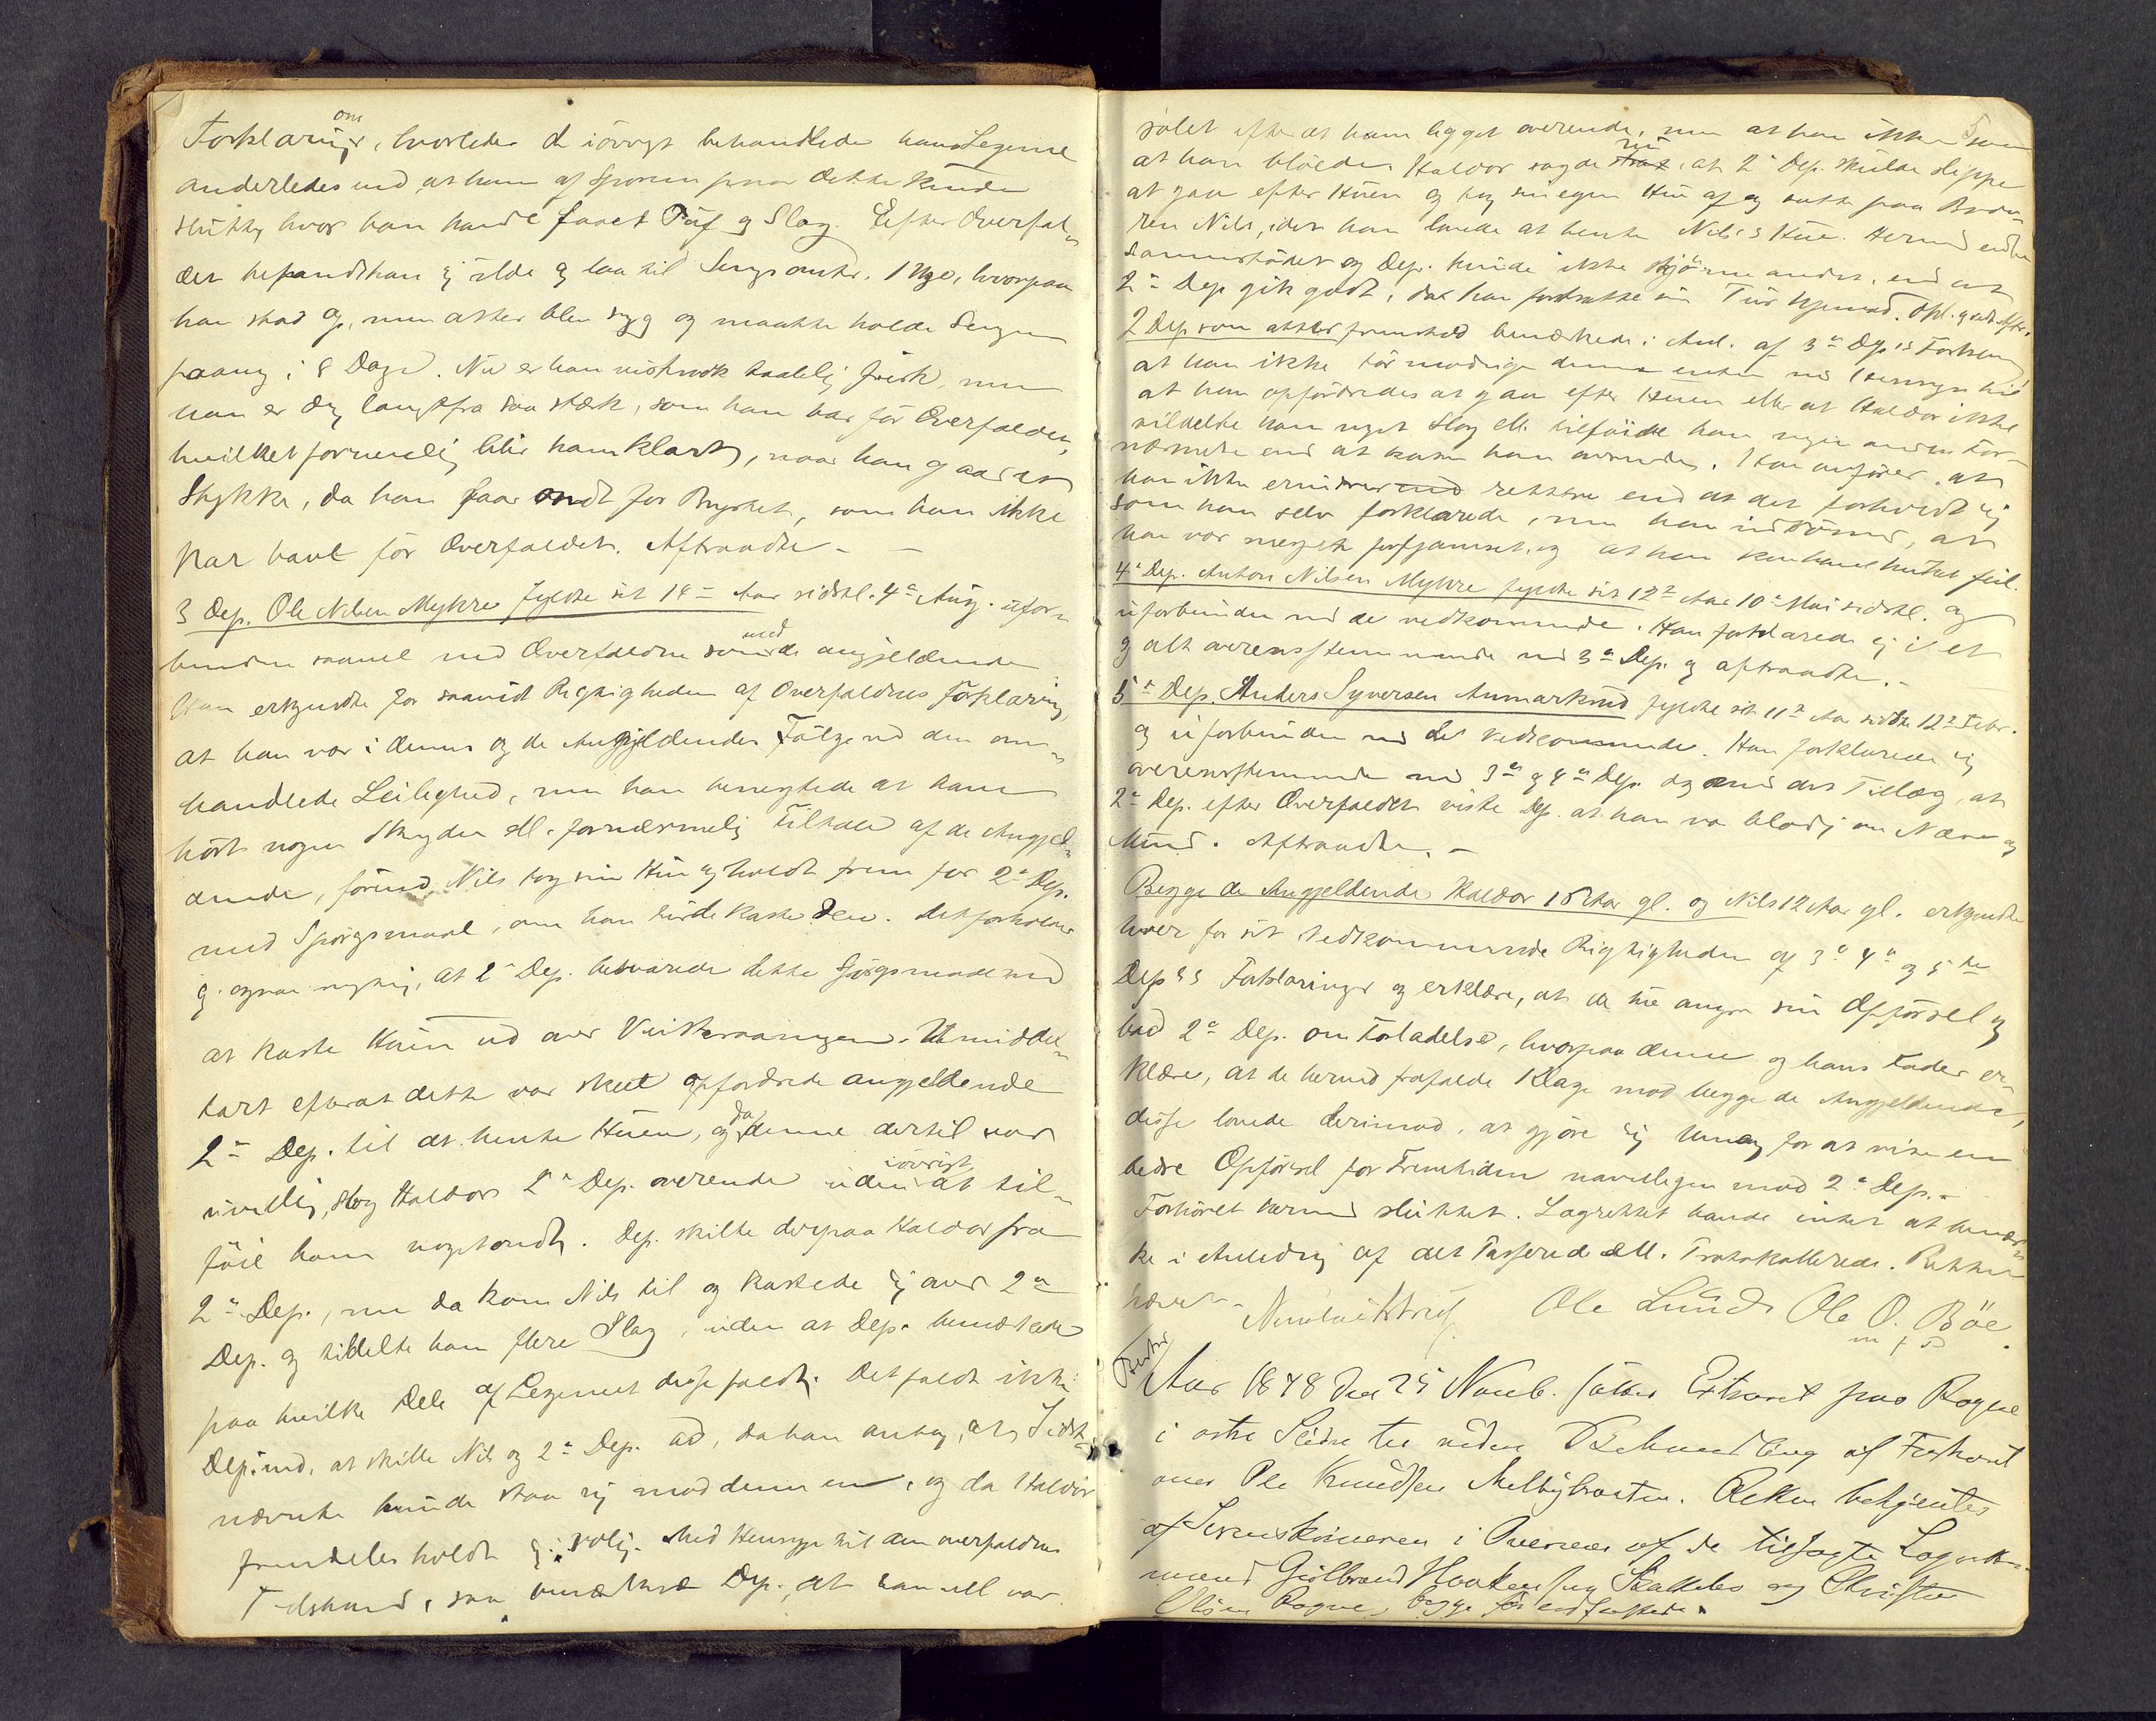 om
Forklaringer, hvorledes de iövrigt behandlede hans Legeme
anderledes end at ham af foran dette
Stykke, hvor han havde faaet Puf og Slag. Efter Overfal-
det befandt han sig ilde og laa til Sengs omtr. 1 Uge, hvorpaa
han stod op, men atter blev syg og maatte holde Sengen
paany i 8 Dage. Nu er han vistnok taalelig frisk, men
han er dog langtfra saa stærk, som han var för Overfaldet,
hvilket fornemmelig blir ham klart, naar han gaar et
Stykke, da han faar ondt for Brystet, som han ikke
har havt för Overfaldet. Aftraadte. -
3 Dep. Ole Nilsen Myhre fyldte sit 14de Aar sidstl. 4de Aug. ufor-
bunden saavel med Overfaldne som med de angjeldende
Han erkjendte for saavidt Rigtigheden af Overfaldnes Forklaring,
at han var i dennes og de Angjeldendes Fölge ved den om-
handlede Leilighed, men han benegtede at have
hört nogen Skjenden ell. fornærmelig Tiltale af de Angjel-
dende, förend Nils tog sin Hue og holdt frem for 2den Dep.
med Spörgsmaal, om han turde kaste den. Det forholder
sig ogsaa rigtig, at 2den Dep. besvarede dette Spörgsmaal med
at kaste Huen ud over . Umiddel-
bart efterat dette var skeet opfordrede angjeldende
2den Dep. til at hente Huen, og da denne dertil var
uvillig, slog Haldor 2den Dep. overende uden iövrigt at til-
föie ham noget ondt. Dep. skilte derpaa Haldor fra
2den Dep., men da kom Nils til og kastede sig over 2den
Dep. og tildelte ham flere Slag, uden at Dep. bemærkede
paa hvilke Dele af Legemet disse faldt. Det faldt ikke
Dep. ind, at skille Nils og 2den Dep. ad, da han antog, at Sidst-
nævnte kunde staa sig mod denne ene, og da Haldor
fremdeles holdt sig rolig. Med Hensyn til den overfaldnes
Tilstand, saa bemærkede Dep., at han vel var
efter at ham ligget overende, men at han ikke saa
at han blödede. Haldor sagde nu, at 2den Dep. skulde slippe
at gaa efter Huen og tog sin egen Hue af og satte paa Brode-
ren Nils, idet han lovede at hente Nils's Hue. Hermed endte
Sammenstödet og Dep. kunde ikke skjönne andet, end at
2den Dep gik godt, da han fortsatte sin Tur hjemad. Opl. og vedt. Aftr.
2 Dep som atter fremstod bemærkede i Anl. af 3die Dep's Forklaring
at han ikke tör modsige denne enten med Hensyn til
at han opfordredes at gaa efter Huen eller at Haldor ikke
tildelte ham noget Slag ell. tilföiede ham nogen anden For-
nærmelse end at kaste ham overende. Han anförer, at
han ikke erindrer rettere end at det forholdt sig
som han selv forklarede, men han indrömmer, at
han var meget forfjamset, og at han kan have husket feil.
4de Dep. Anton Nilsen Myhre fyldte sit 12te Aar 10de Mai sidstl. og
uforbunden med de vedkommende. Han forklarede sig i et
og alt overensstemmende med 3die Dep. og aftraadte. -
5te Dep. Anders Syversen fyldte sit 11te Aar sidstl. 12te Febr.
og uforbunden med de vedkommende. Han forklarede sig
overensstemmende med 3die og 4de Dep. og med det Tillæg, at
2den Dep. efter Overfaldet viste Dep. at han var blodig om Næse og
Mund. Aftraadte. -
Begge de Angjeldende Haldor 15 Aar gl. og Nils 12 Aar gl. erkjendte
hver for sit Vedkommende Rigtigheden af 3die 4de og 5te
Dep's Forklaringer og erklære, at de nu angre sin Opförsel og
bad 2den Dep. om Forladelse, hvorpaa denne og hans Fader er-
klære, at de hermed frafalde Klage mod begge de Angjeldende,
disse lovede derimod, at gjöre sig Umag for at vise en
bedre Opförsel for Fremtiden navnligen mod 2den Dep. -
Forhöret hermed sluttet. Lagrettet havde intet at bemær-
ke i Anledning af det Passerede ell. Protokollerede. Retten
hævet. - Ole Lunde Ole O. Böe
m f P
Aar 1878 den 25 Novb. sattes Extraret paa Rogne
i östre Slidre til videre Behandling af Forhöret
over Ole Knudsen Melbybraaten. Retten betjentes
af Sorenskriveren i Overvær af de tilsagte Lagrettes-
mænd Gulbrand Haakensen og Christen
Olsen Rogne, begge för edfæstede.